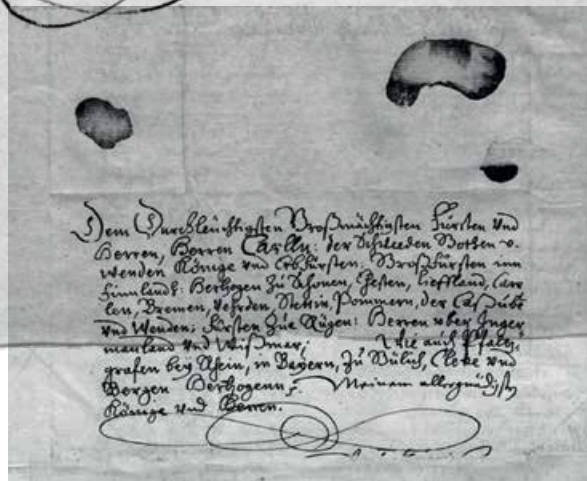 Dem Durchleüchtigsten Großmächtigsten Fürsten Vnd
Herren, Herren Carlln: der Schweden Gothen v.
Wenden Könige Vnd Erbfürsten: Großfürsten inn
Finnlandt: Herhogen Zu Schonen, Ehesten, Lieffland, Care
len, Bremen, Vehrden, Stettin Pommern, der Caßube
Vnd Wenden: Fürsten Zue Rügen: Herren vber Inger
manland Vnd Wißmar, Wie auch Pfaltz-
grafen bey Rhein, in Bayern, Zu Gülich, Cleve Vnd
Bergen Herhogenn,. Meinem allergnädigsten
Könige Vnd Herren.